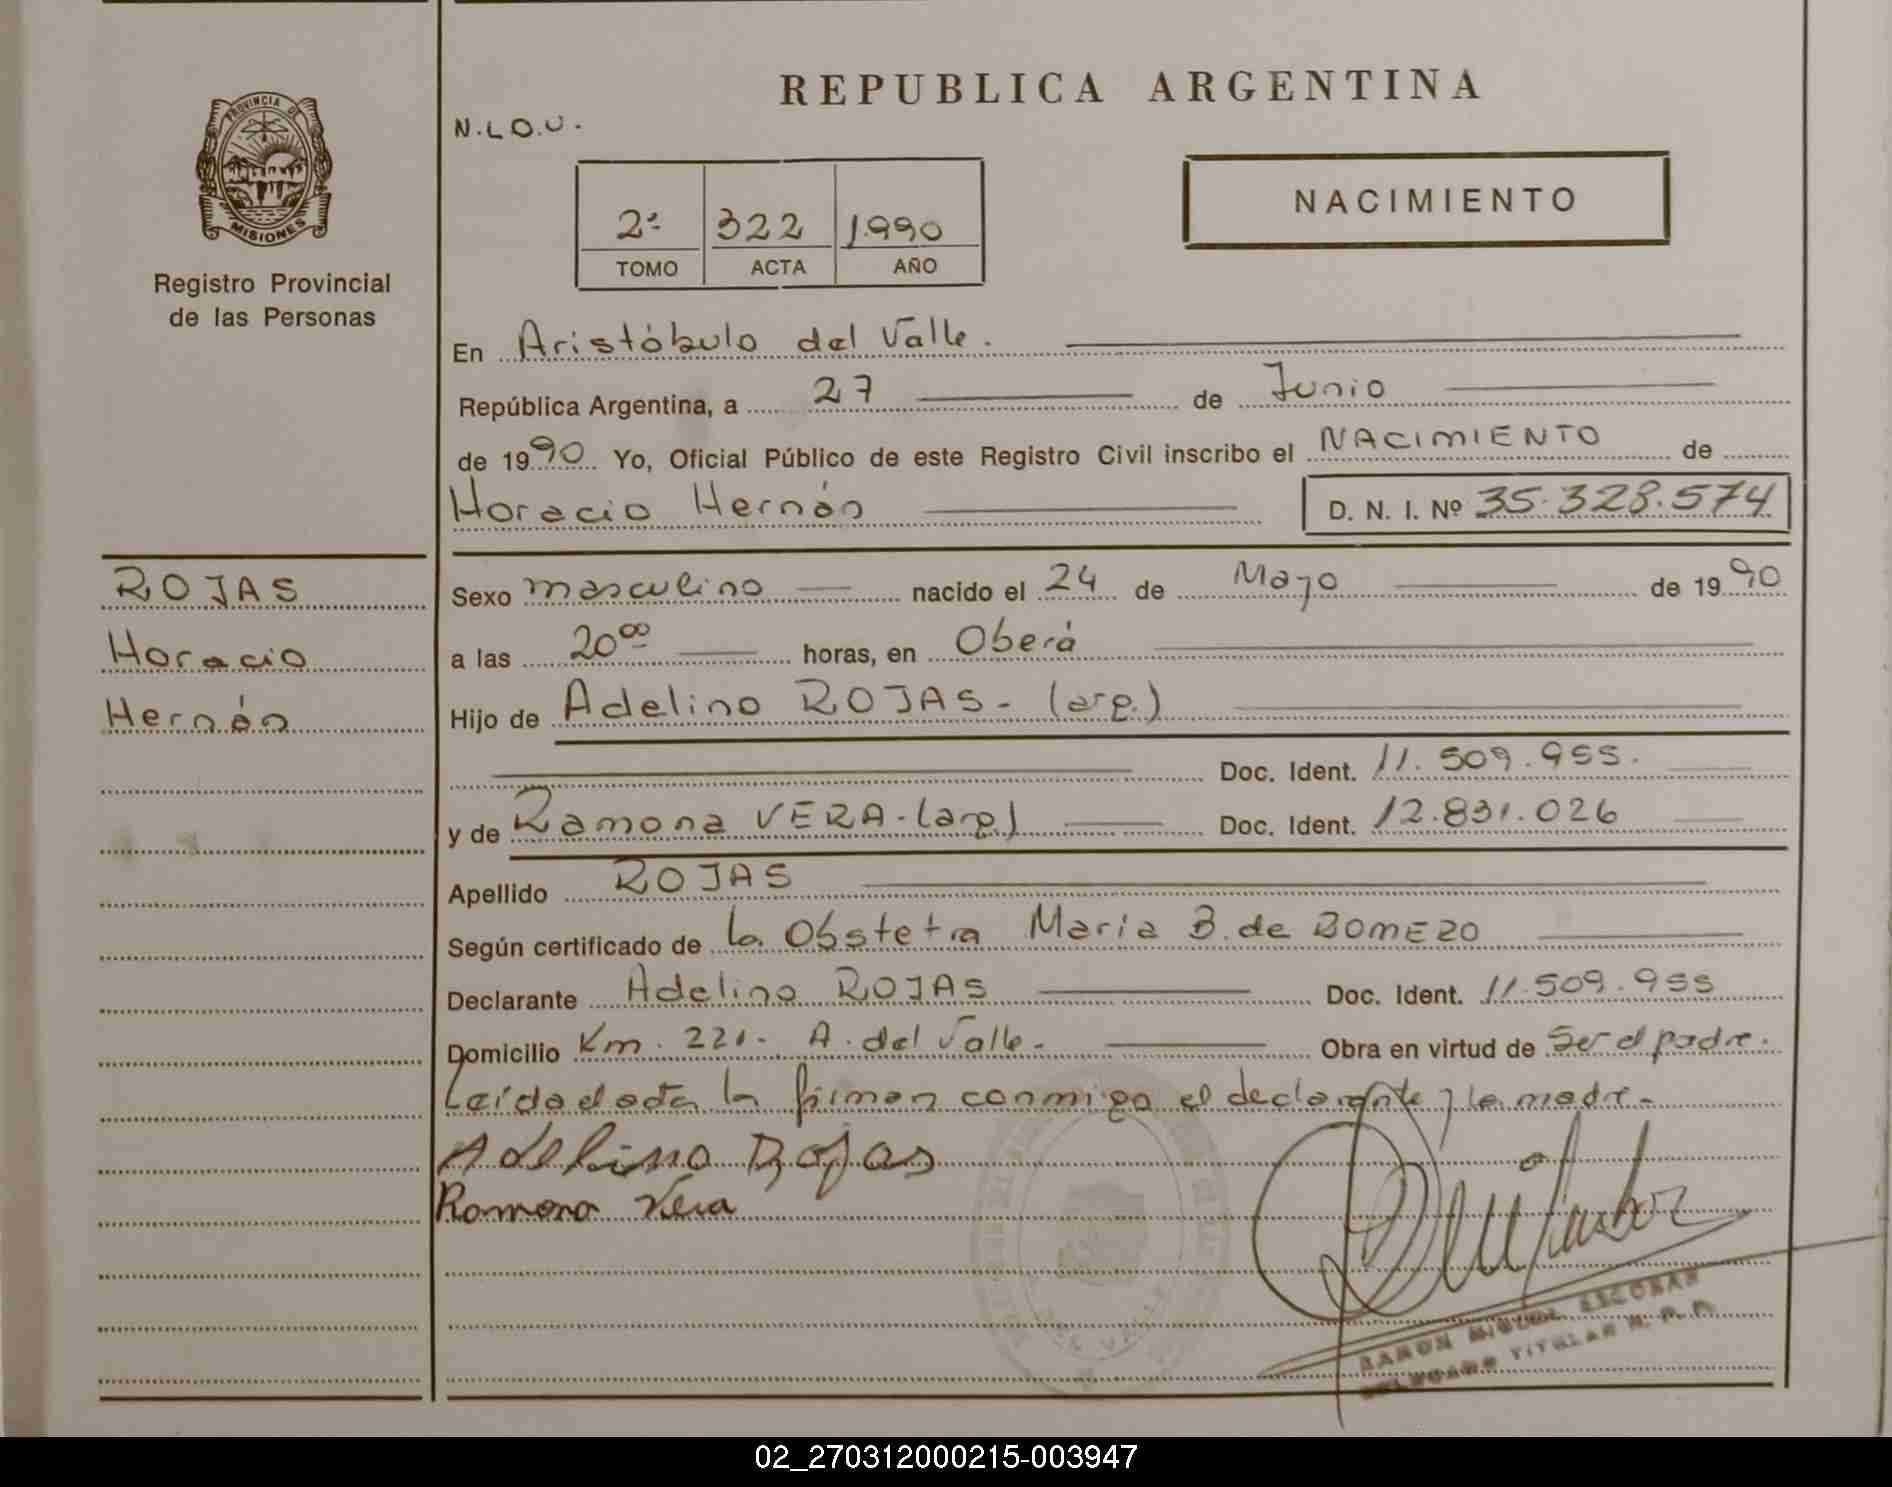 PROVINCIA DE
MISIONES
Registro Provincial
de las Personas
ROJAS
Horacio
Hernán
REPUBLICA ARGENTINA
N.L.O.U.
2ª 322 1990
TOMO ACTA AÑO
NACIMIENTO
En Aristóbulo del Valle.
República Argentina, a 27 de Junio
de 1990 Yo, Oficial Público de este Registro Civil inscribo el NACIMIENTO de
Horacio Hernán D. N. I. Nº 35.328.574
Sexo masculino nacido el 24 de Mayo de 1990
a las 20 00 horas, en Oberá
Hijo de Adelino ROJAS - (arg.)
Doc. Ident. 11.509.955.
y de Ramona VERA - (arg) Doc. Ident. 12.831.026
Apellido ROJAS
Según certificado de la Obstetra Maria B. de
Declarante Adelino ROJAS Doc. Ident. 11.509.955
Domicilio Km. 221. A. del Valle. Obra en virtud de Ser el padre.
Leída el acta la firman conmigo el declarante y la madre.
Adelino Rojas
Ramona Vera
DEL VALLE
RAMON MIGUEL ESCOBAR
DELEGADO TITULAR R. P. P.
02_270312000215-003947